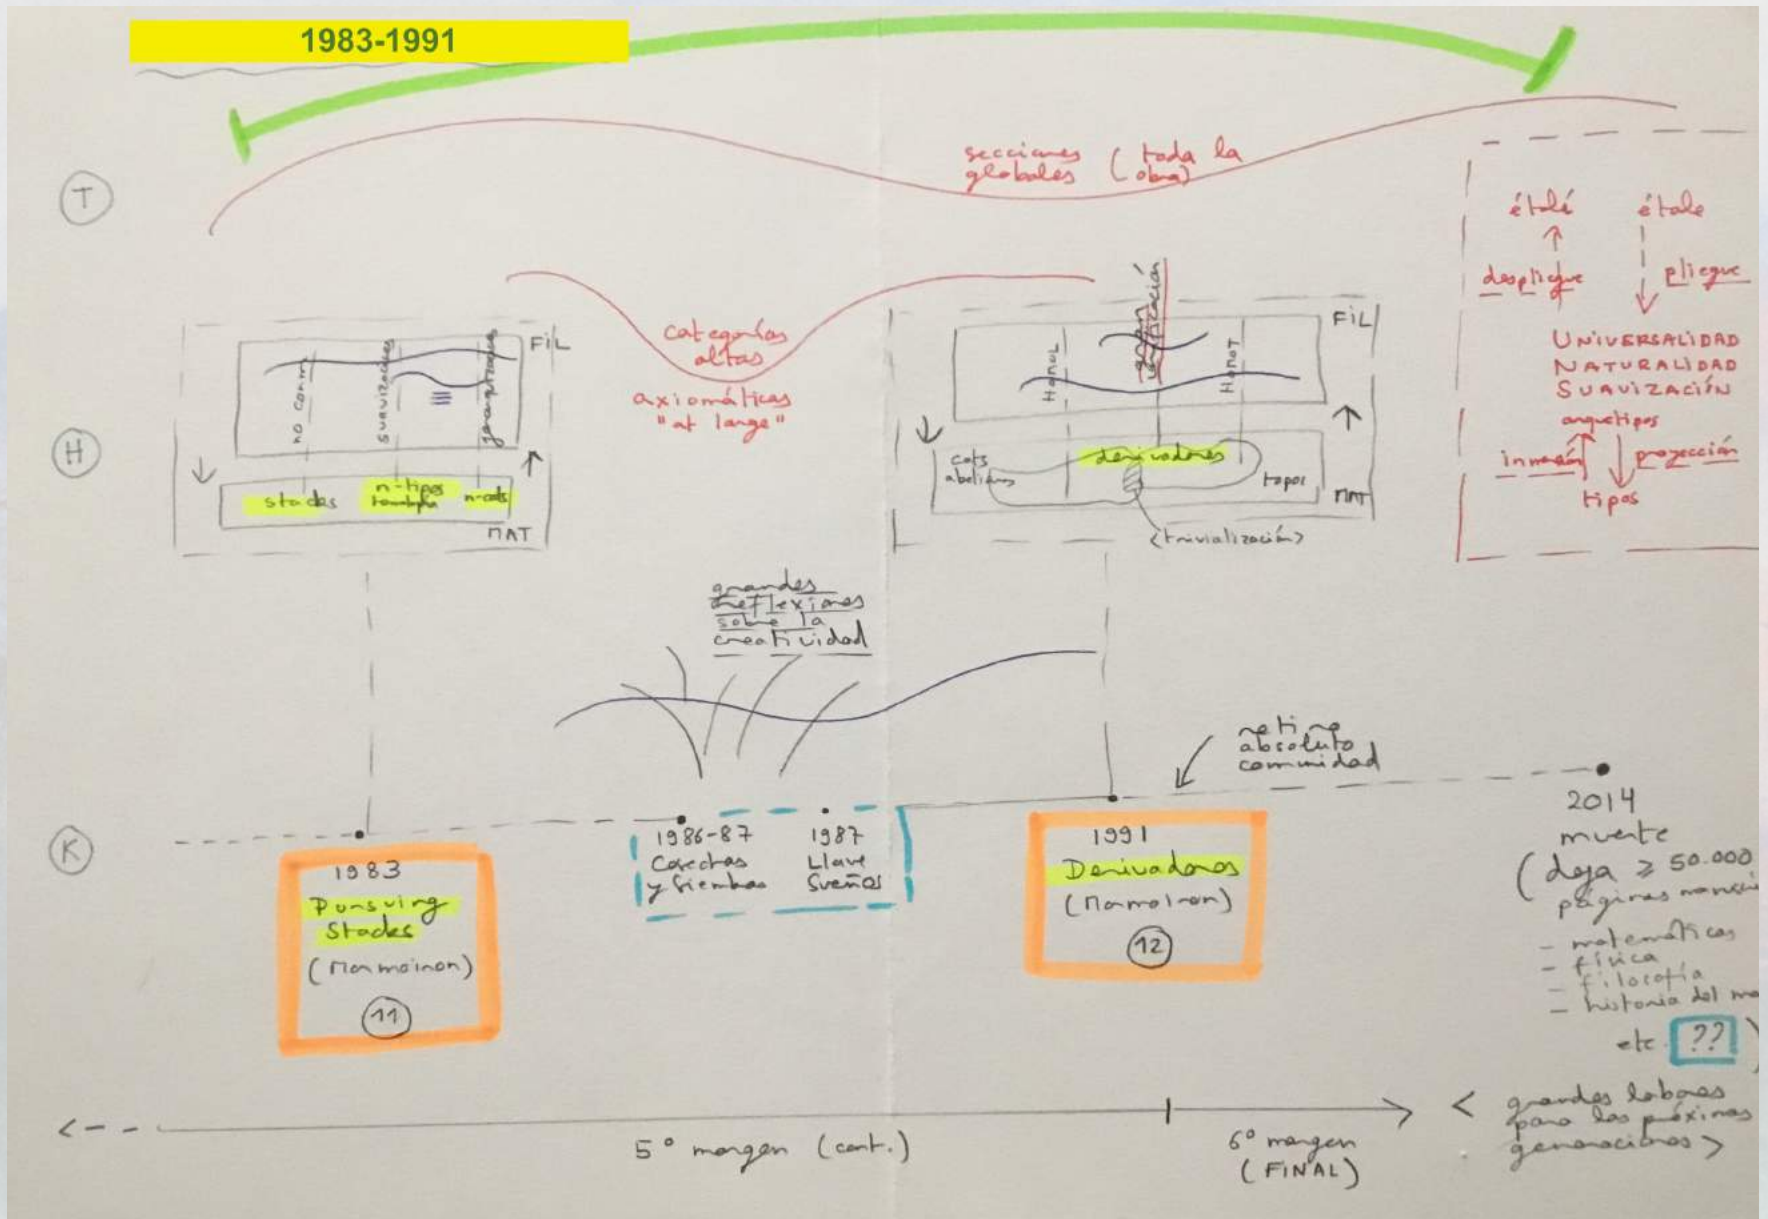 1983-1991
T
secciones (toda la
globales obra)
étalé étale
despliegue pliegue
UNIVERSALIDAD
NATURALIDAD
SUAVIZACIÓN
arquetipos
inversión proyección
tipos
H
FIL
no conm
suavizaciones
stacks
n-tipos
n-cats
MAT
categorías
altas
axiomáticas
"at large"
FIL
HOMOL
HOMOT
cats
abelianas
derivadores
topos
MAT
<trivialización>
grandes
reflexiones
sobre la
creatividad
retiro
absoluto
comunidad
K
1983
Pursuing
Stacks
(Mormoiron)
11
1986-87
Cosechas
y Siembras
1987
Llave
Sueños
1991
Derivadores
(Mormoiron)
12
2014
muerte
(deja ≥ 50.000
páginas manusc
- matemáticas
- física
- filosofía
- historia del m
etc. ?? )
5º margen (cont.)
6º margen
(FINAL)
< grandes labores
para las próximas
generaciones >